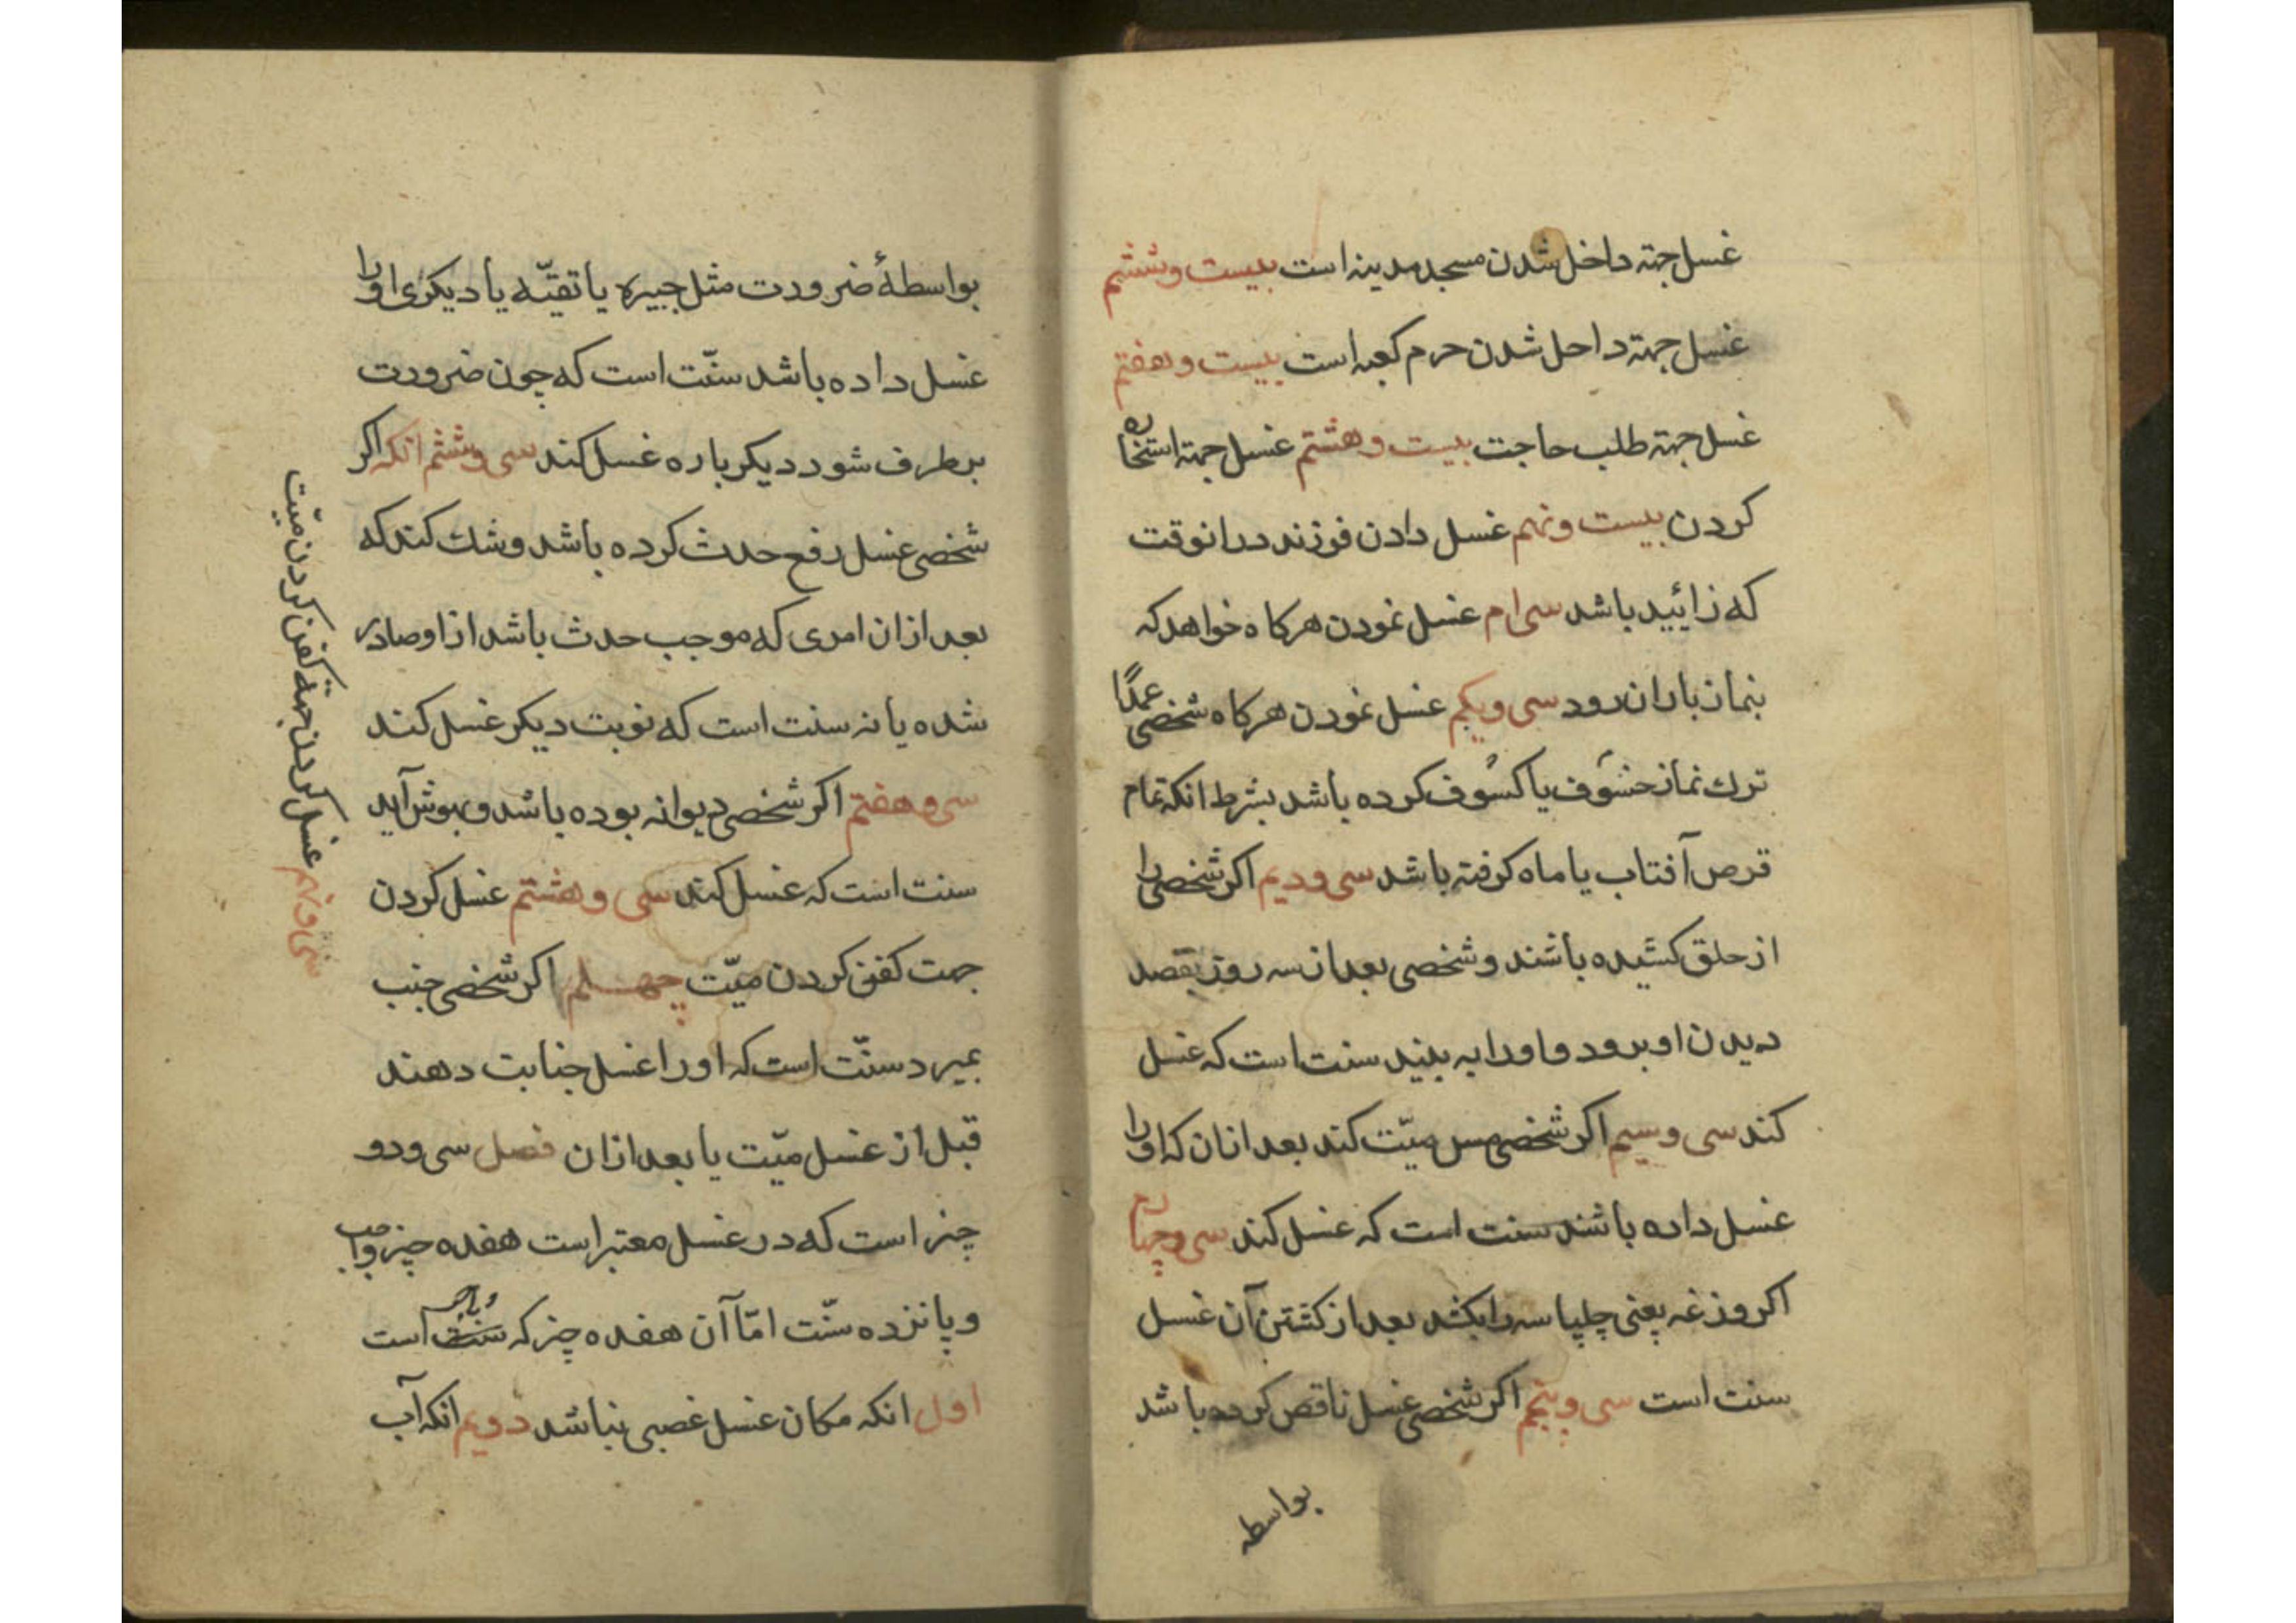 غسل جهته داخل شدن مسجد مدینه است بیست و ششم
غسل جهته داحل شدن حرم کعبه است بیست و هفتم
غسل جهته طلب حاجت بیست و هشتم غسل جهته استخاره
کردن بیست و نهم غسل دادن فرزند در انوقت
که زائید باشد سی ام غسل نمودن هرکاه خواهد که
بنماز باران رود سی و یکم غسل نمودن هرکاه شخصی عمدًا
ترك نماز خسَوف یا کسُوف کرده باشد بشرط انکه تمام
قرص آفتاب یا ماه کرفته باشد سی و دیم اکر شخصی را
از حلق کشیده باشند و شخصی بعد از سه روز بقصد
دیدن او برود و او را به بیند سنت است که غسل
کند سی و سیم اکر شخصی مس میّت کند بعد ازان که او را
غسل داده باشند سنت است که غسل کند سی و چهارم
اکر وزغه یعنی چلپاسه را بکشد بعد از کشتن آن غسل
سنت است سی و پنجم اکر شخصی غسل ناقص کرده باشد
بواسطه
بواسطهٔ ضرورت مثل جبیره یا تقیّه یا دیکری او را
غسل داده باشد سنّت است که چون ضرورت
برطرف شود دیکر باره غسل کند سی و ششم انکه اکر
شخصی غسل رفع حدث کرده باشد و شك کند که
بعد ازان امری که موجب حدث باشد از او صادر
شده یا نه سنت است که نوبت دیکر غسل کند
سی و هفتم اکر شخصی دیوانه بوده باشد و بهوش آید
سنت است که غسل کند سی و هشتم غسل کردن
جهت کفن کردن میّت چهلم اکر شخصی جنب
بمیرد سنّت است که او را غسل جنابت دهند
قبل از غسل میّت یا بعد ازان فصل سی و دو
چیز است که در غسل معتبر است هفده چیز واجب
و پانزده سنّت امّا آن هفده چیز که سنت واجب است
اول انکه مکان غسل غصبی نباشد دویم انکه آب
سی و نهم غسل کردن جهته کفن کردن میّت